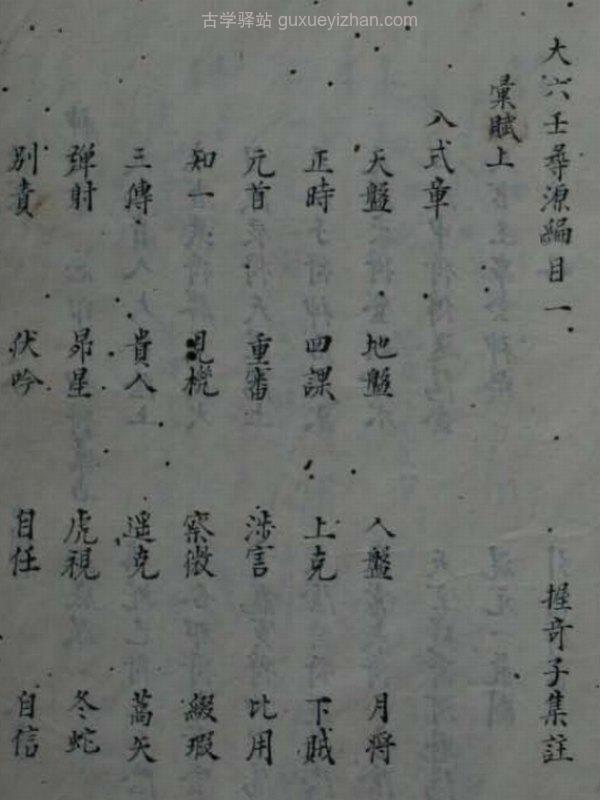 古学驿站 guxueyizhan.com
大六壬尋源編目一 握奇子集註
彙賦上
入式章
天盤 地盤 人盤 月将
正時 四課 上克 下賊
元首 重審 涉害 比用
知一 見機 察微 綴瑕
三傳 貴人 遥克 蒿矢
弹射 昴星 虎視 冬蛇
别責 伏吟 自任 自信